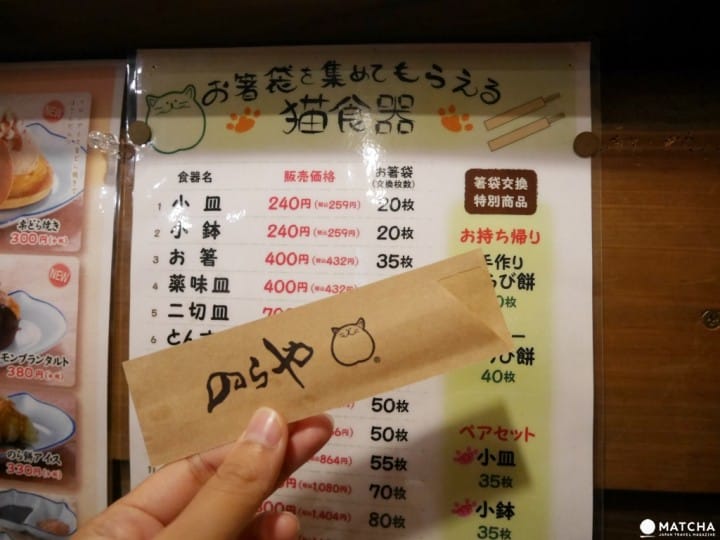 お箸袋を集めてもらえる
猫食器
食器名 販売価格 お箸袋(交換枚数)
1 小皿 240円(税込259円) 20枚
2 小鉢 240円(税込259円) 20枚
3 お箸 400円(税込432円) 35枚
4 薬味皿 400円(税込432円)
5 二切皿
6
50枚
50枚
864円) 55枚
1,080円) 70枚
1,404円) 80枚
箸袋交換
特別商品
お持ち帰り
手作り
び餅
40枚
ペアセット
小皿
35枚
小鉢
35枚
のらや
®
NEW
300円
NEW
モンブランタルト
380円
のら餅アイス
330円
MATCHA
JAPAN TRAVEL MAGAZINE